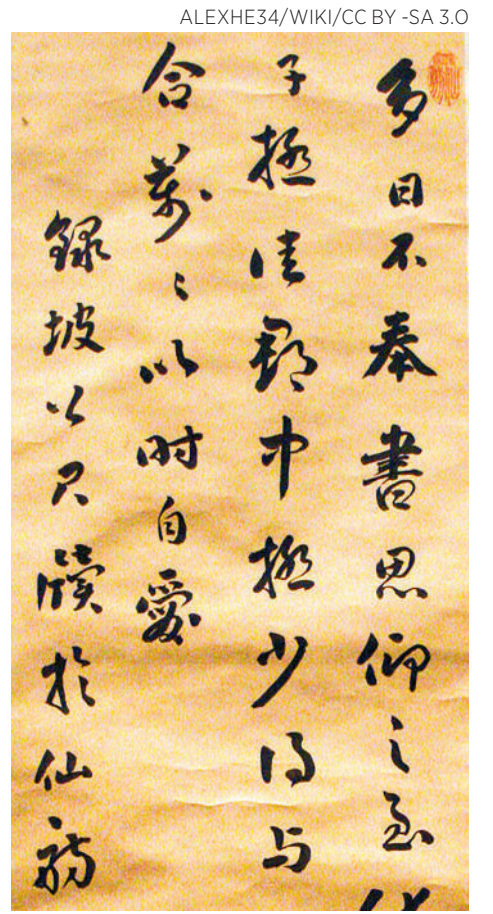 ALEXHE34/WIKI/CC BY -SA 3.0
多日不奉書思仰之至
子極佳郡中極少得与
合萬〻以時自愛
錄坡公尺牘於仙舫